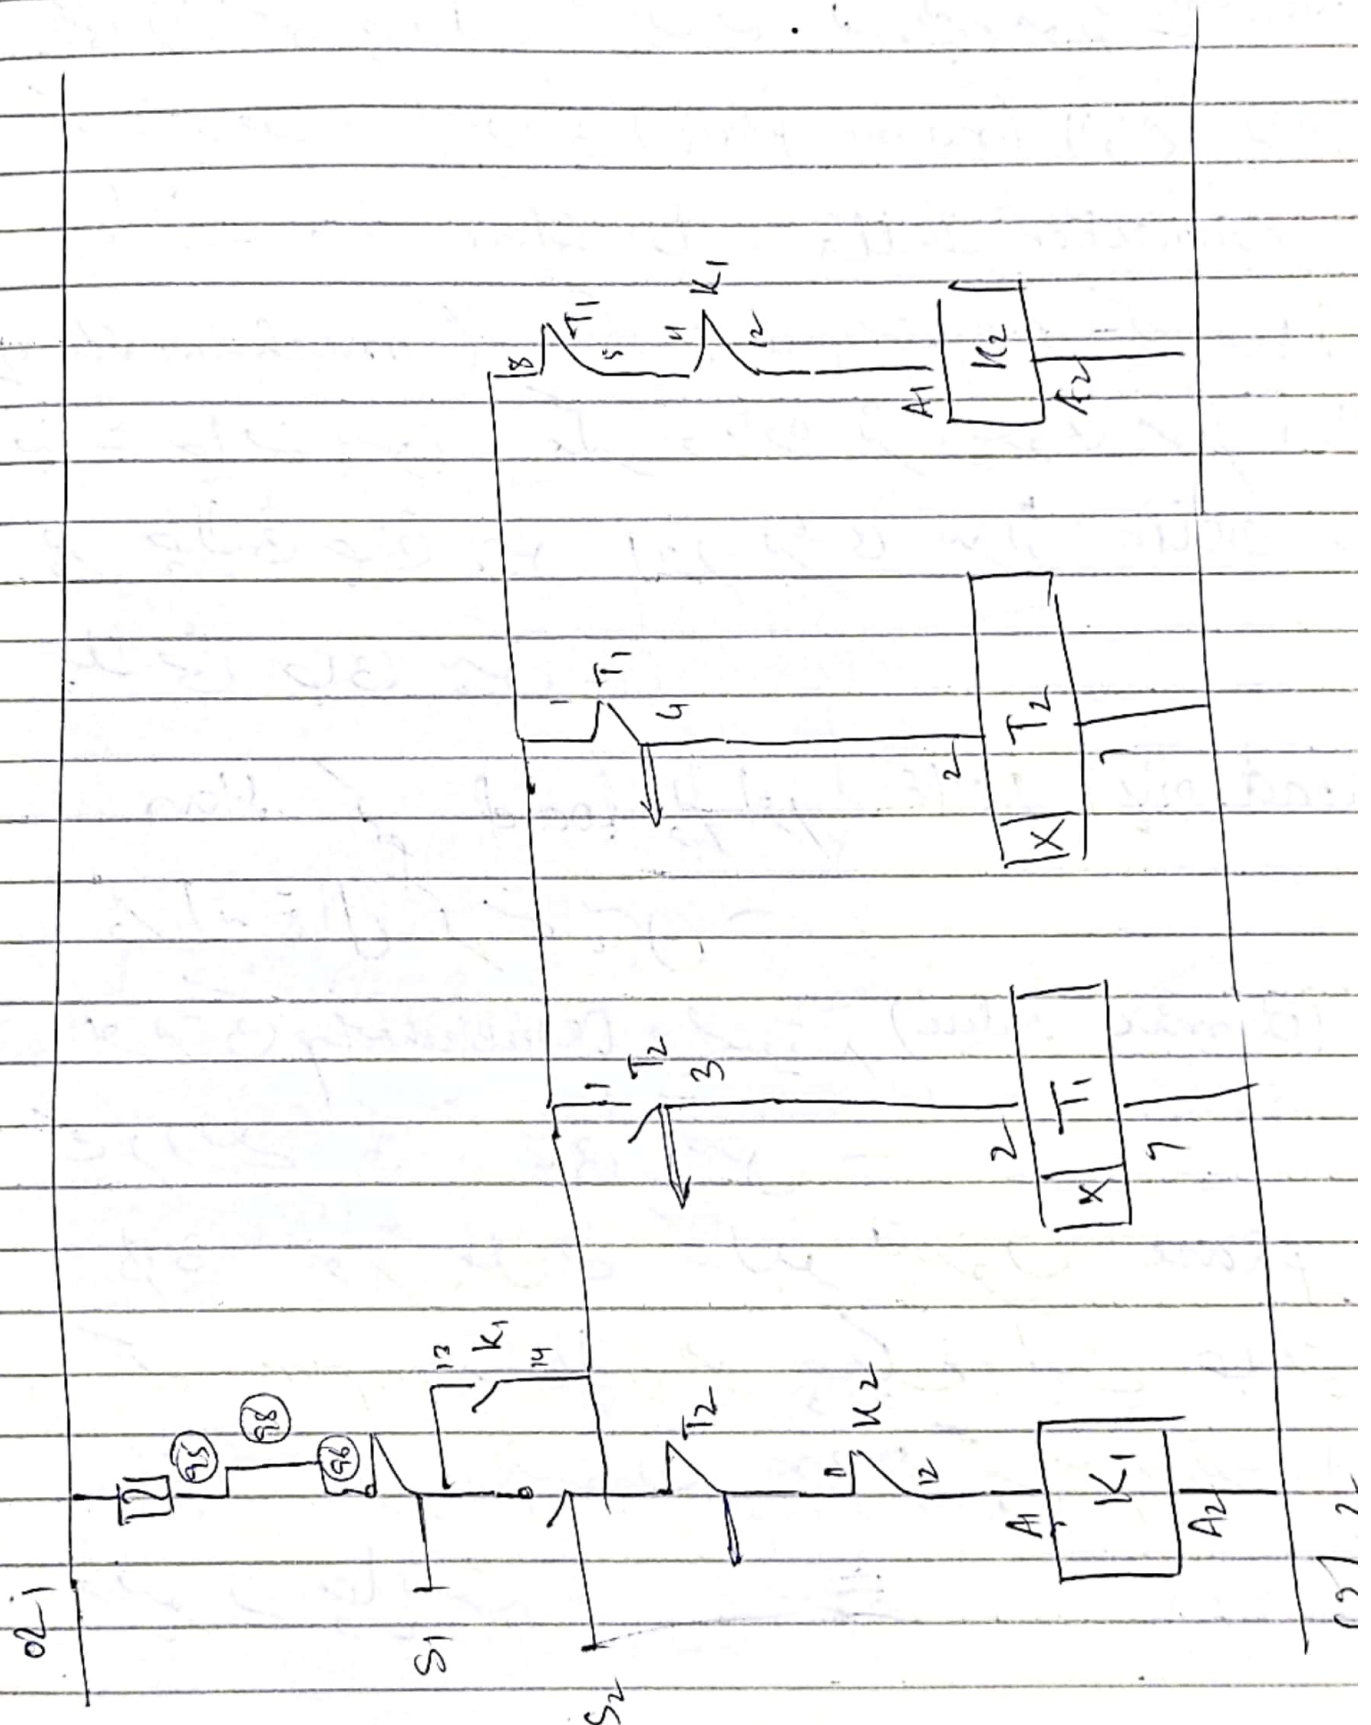 95
98
96
S1
13
K1
14
S2
T2
K2
12
A1
K1
A2
1
T2
3
2
X T1
7
1
T1
4
2
X T2
7
8
T1
5
11
K1
12
A1
K2
A2